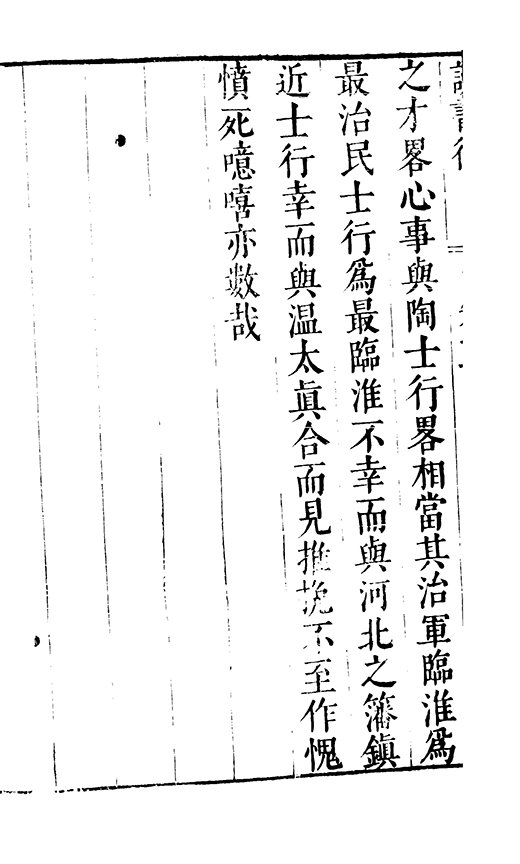 讀書後
之才畧心事與陶士行畧相當其治軍臨淮爲
最治民士行爲最臨淮不幸而與河北之籓鎭
近士行幸而與温太眞合而見推挽不至作愧
憤死噫嘻亦數哉